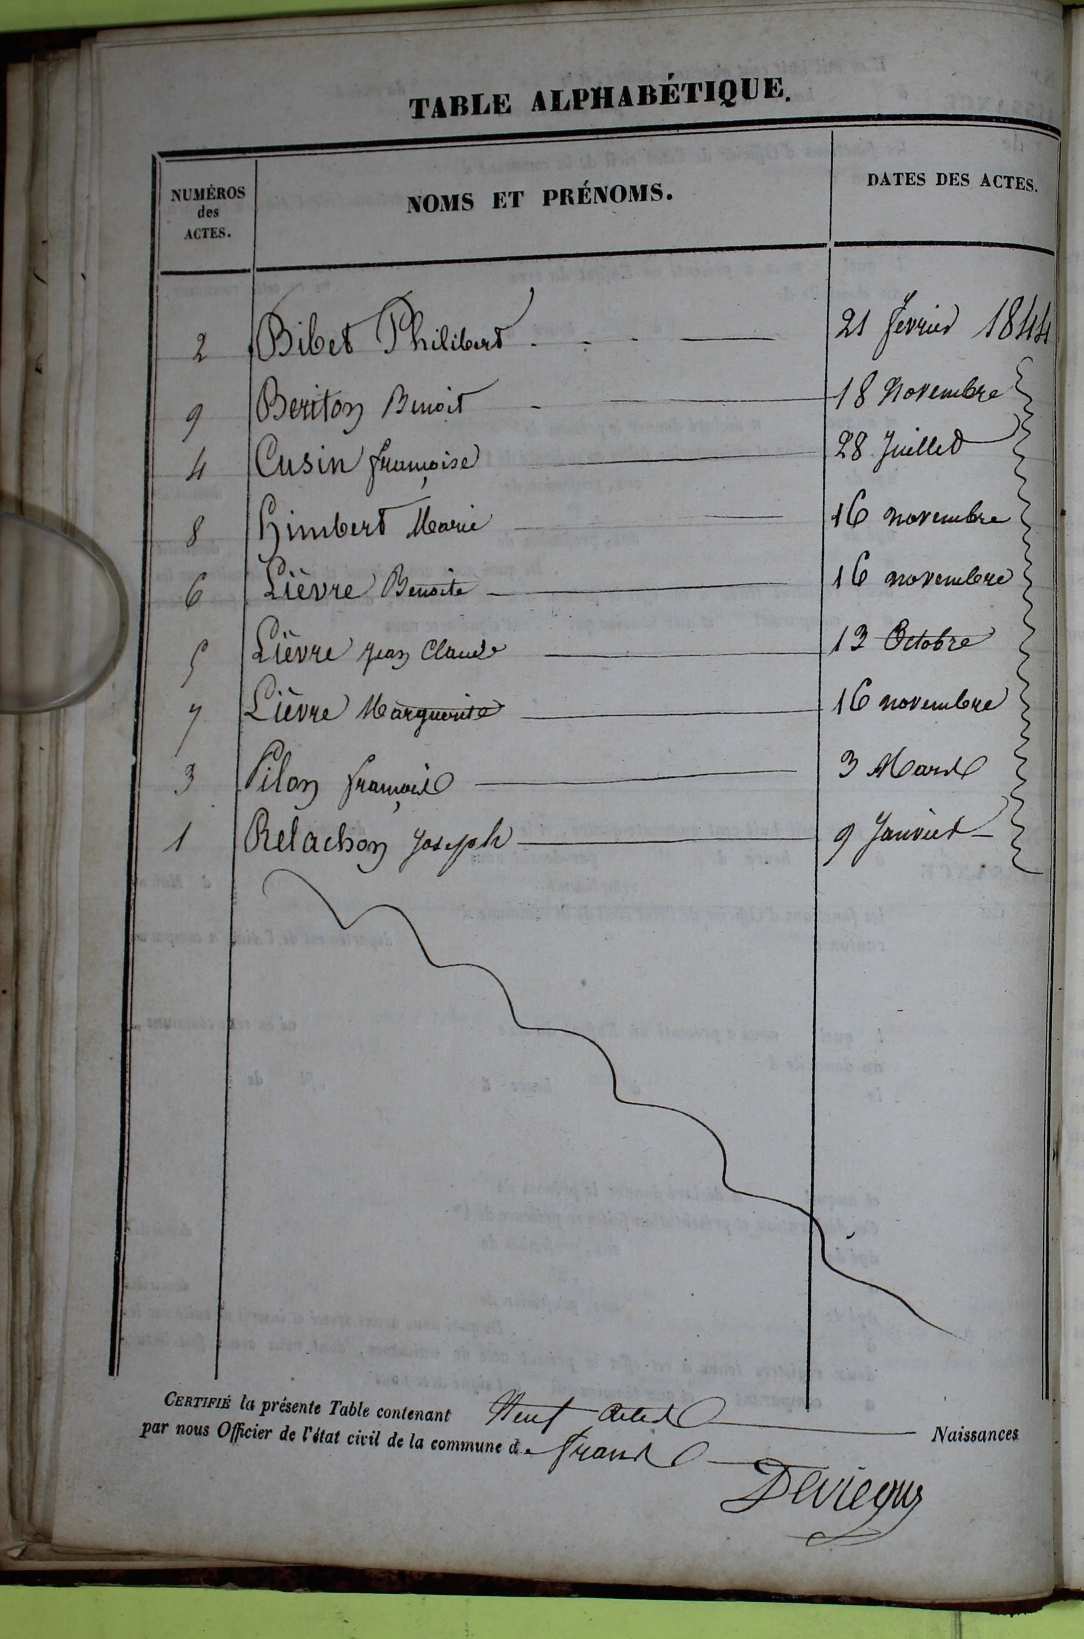 TABLE ALPHABÉTIQUE.
NUMÉROS des ACTES. NOMS ET PRÉNOMS. DATES DES ACTES.
2 Bibet Philibert 21 février 1844
9 Beriton Benoit 18 Novembre
4 Cusin françoise 28 Juillet
8 Himbert Marie 16 novembre
6 Lièvre Benoite 16 novembre
5 Lièvre Jean Claude 13 Octobre
7 Lièvre Marguerite 16 novembre
3 Pilon françois 3 Mars
1 Relachon Joseph 9 Janvier
CERTIFIÉ la présente Table contenant Neuf actes Naissances
par nous Officier de l'état civil de la commune de frans